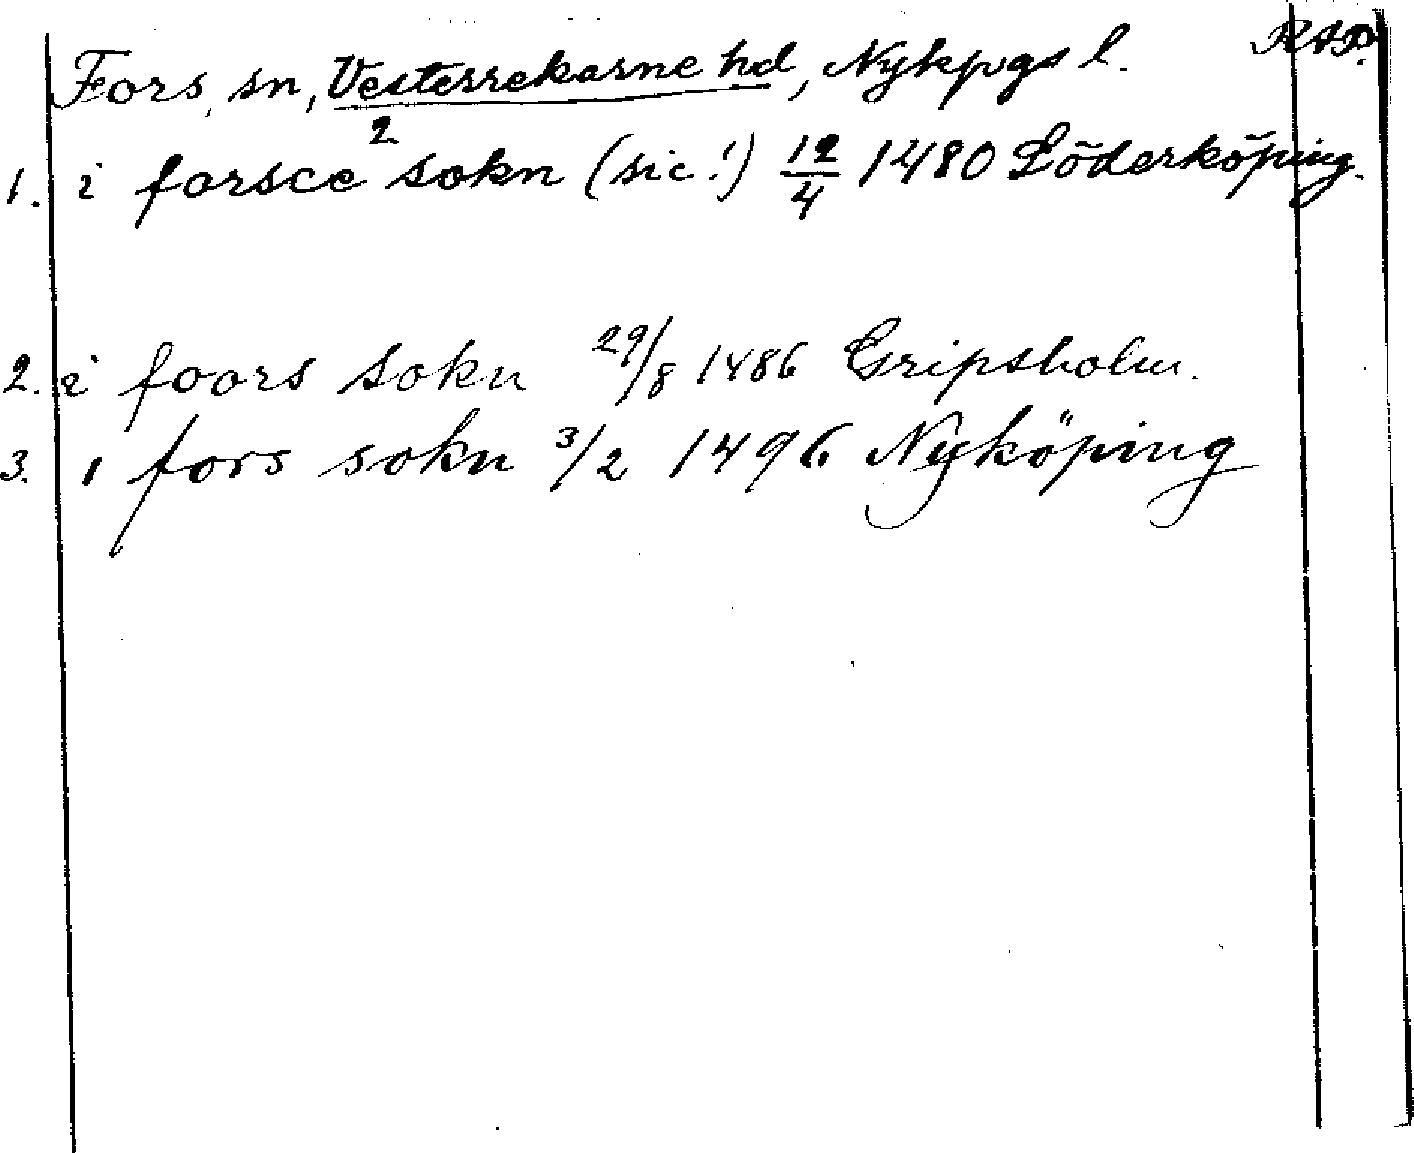 Fors, sn, Vesterrekarne hd, Nykpgs l. RAP.
2
1. i forsce sokn (sic!) 12/4 1480 Söderköping.
2. i foors sokn 29/8 1486 Gripsholm.
3. i fors sokn 3/2 1496 Nyköping